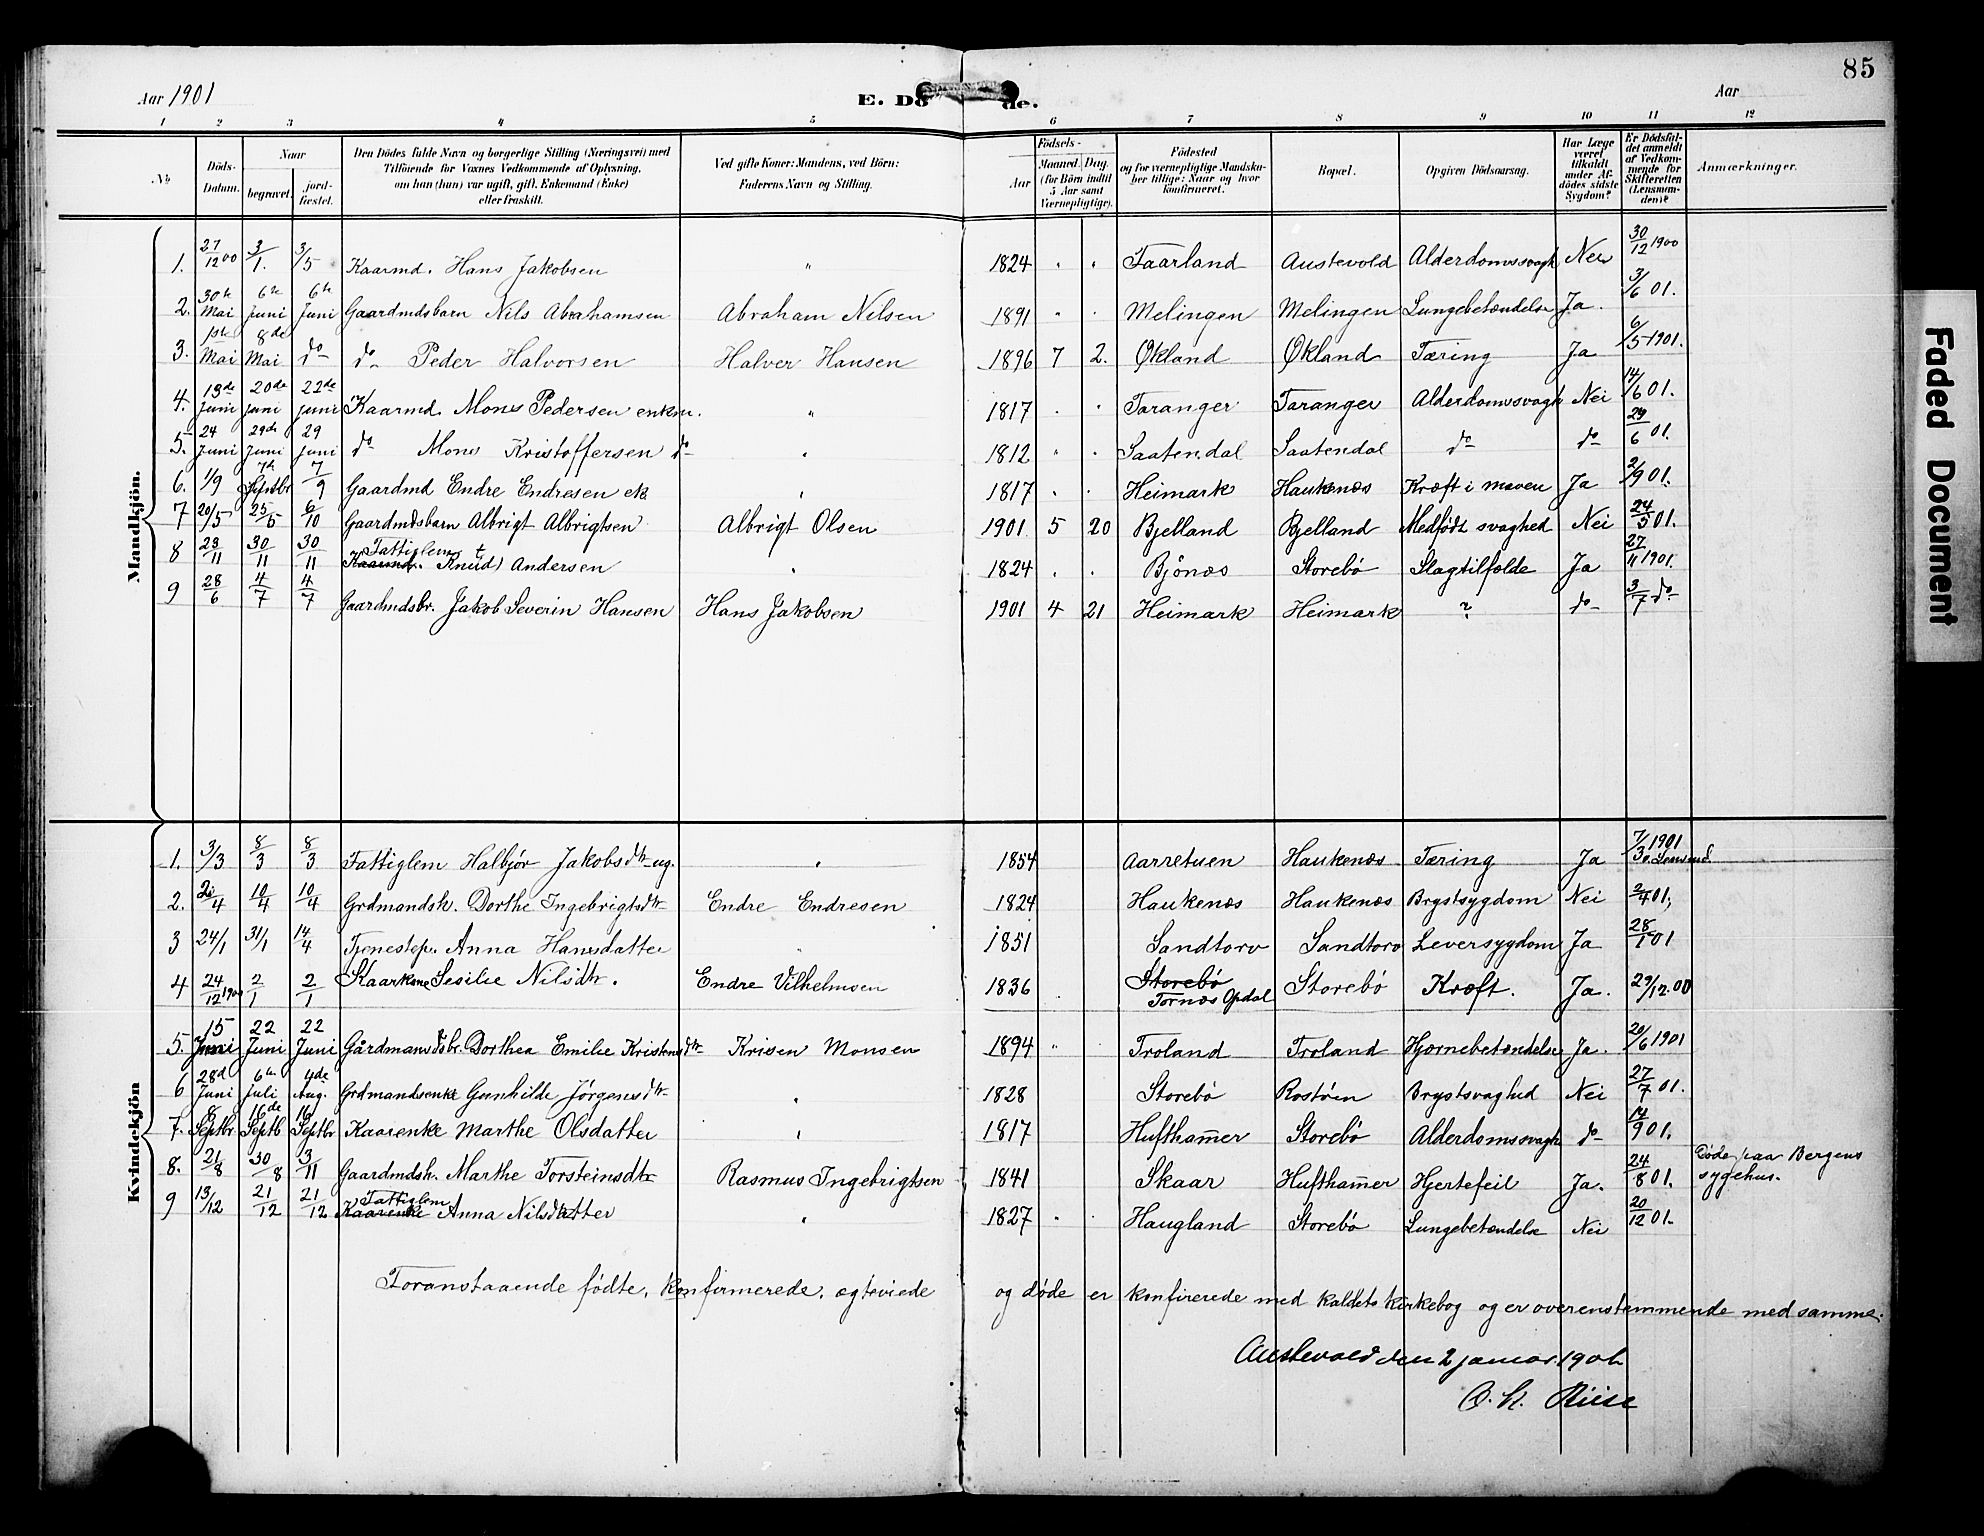 85
Aar 1901 E. Dö de. Aar
1 2 3 4 5 6 7 8 9 10 11 12
№ Döds-Datum. Naar begravet. jordfæstet. Den Dödes fulde Navn og borgerlige Stilling (Næringsvei) med Tilföiende for Voxnes Vedkommende af Oplysning, om han (hun) var ugift, gift, Enkemand (Enke) eller fraskilt. Ved gifte Koner: Mandens, ved Börn: Faderens Navn og Stilling. Födsels- Aar Maaned. Dag. (for Börn indtil 5 Aar samt Værnepligtige). Födested og for værnepligtige Mandskaber tillige: Naar og hvor konfirmeret. Bopæl. Opgiven Dödsaarsag. Har Læge været tilkaldt under Afdödes sidste Sygdom? Er Dödsfaldet anmeldt af Vedkommende for Skifteretten (Lensmanden)? Anmærkninger.
Mandkjön.
1. 27/12 00 3/1. 3/5 Kaarmd. Hans Jakobsen " 1824 " " Faarland Austevold Alderdomssvagh Nei 30/12 1900
2. 30te Mai 6te Juni 6te Juni Gaardmdsbarn Nils Abrahamsen Abraham Nilsen 1891 " " Melingen Melingen Lungebetændelse Ja. 3/6 01.
3. 1ste Mai 8de Mai do do Peder Halvorsen Halver Hansen 1896 7 2. Økland Økland Tæring Ja 6/5 1901.
4. 13de Juni 20de juni 22de juni Kaarmd. Mons Pedersen enkm. " 1817 " " Taranger Taranger Alderdomssvagh Nei 14/6 01.
5. 24 Juni 29de Juni 29 juni do Mons Kristoffersen do " 1812 " " Saatendal Saatendal do do 29/6 01.
6. 1/9 7de Septbr 7/9 Gaardmd Endre Endresen ek " 1817 " " Heimark Haukenæs Kræft i maven Ja 2/9 01.
7 20/5 25/5 6/10 Gaardmdsbarn Albrigt Albrigtsen Albrigt Olsen 1901 5 20 Bjelland Bjelland Medfødt svaghed Nei 24/5 01.
8 23/11 30/11 30/11 Kaarmd. Fattiglem Knud Andersen " 1824 " " Bjönæs Storebö Slagtilfælde Ja 27/11 1901.
9 28/6 4/7 4/7 Gaardmdsbr. Jakob Severin Hansen Hans Jakobsen 1901 4 21 Heimark Heimark ? do 3/7 do
Kvindekjön
1. 3/3 8/3 8/3 Fattiglem Halbjör Jakobsdtr ug. " 1854 Aarretuen Haukenæs Tæring Ja 7/3 1901 v. Lensmd.
2. 2/4 10/4 10/4 Grdmandsk. Dorthe Ingebrigtsdtr Endre Endresen 1824 Haukenæs Haukenæs Brystsygdom Nei 2/4 01,
3 24/1 31/1 14/4 Tjenestep. Anna Hansdatter " 1851 Sandtorv Sandtorv Leversygdom Ja 28/1 01
4 24/12 1900 2/1 2/1 Kaarkone Sesilie Nilsdtr. Endre Vilhelmsen 1836 Storebö Tornæs Opdal Storebö Kræft. Ja. 29/12.00
5. 15 Juni 22 Juni 22 Juni Gårdmandsbr. Dorthea Emilie Kristensdtr Krisen Monsen 1894 " Troland Troland Hjernebetændelse Ja. 20/6 1901
6 28d Juni 6te Juli 4de Aug. Grdmandsenke Gunhilde Jørgensdtr " 1828 Storebö Rostöen Brystsvaghed Nei 27/7 01.
7. 8 Septbr 16de Septb 16 Septbr Kaarenke Marthe Olsdatter " 1817 Huftham̄er Storebö Alderdomssvagh do 14/9 01.
8. 21/8 30/8 3/11 Gaardmdsk. Marthe Torsteinsdtr Rasmus Ingebrigtsen 1841 Skaar Huftham̄er Hjertefeil Ja. 24/8 01. Døde paa Bergens sygehus.
9 13/12 21/12 21/12 Kaarenke Fattiglem Anna Nilsdatter " 1827 " Haugland Storebö Lungebetændelse Nei 20/12 01.
Foranstaaende fødte, konfirmerede, ægteviede og døde er konfirerede med kaldets kirkebog og er overenstemmende med samme.
Austevold den 2 januar 1902
O. H. Riise
Faded Document